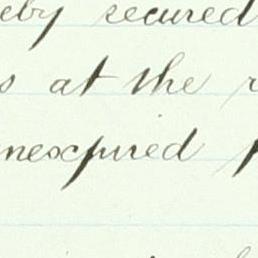 eby secured
s at the r
nexpired p